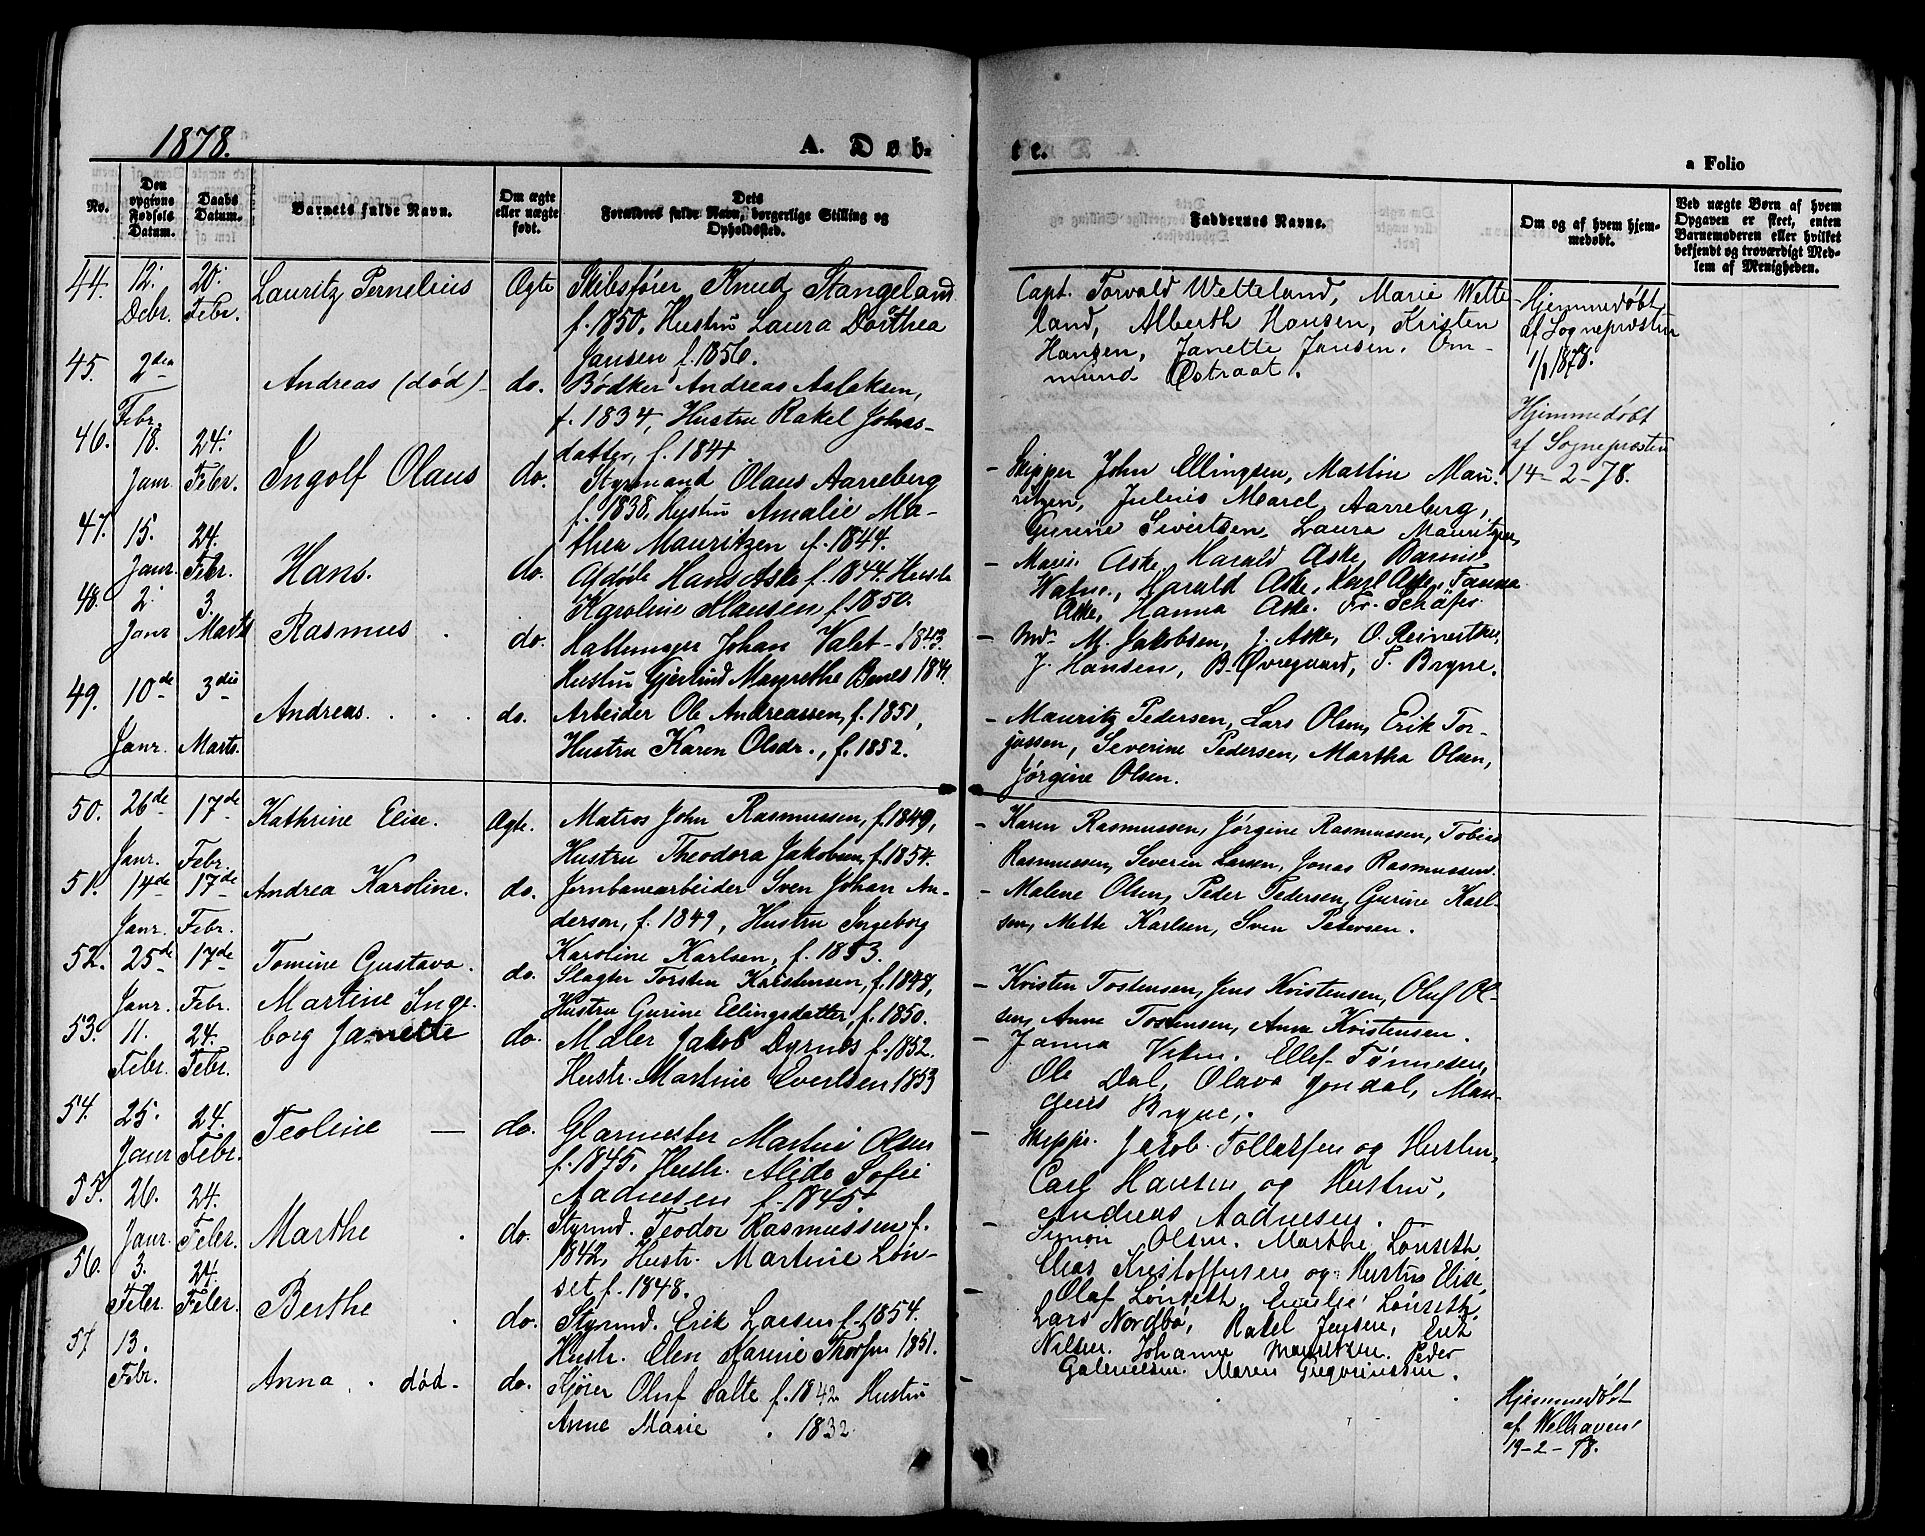 1878.
A. Døb-
te.
a Folio
No.
Den opgivne Fødsels Datum.
Daabs Datum.
Barnets fulde Navn.
Om ægte eller uægte født.
Dets Forældres fulde Navn, borgerlige Stilling og Opholdssted.
Faddernes Navne.
Om og af hvem hjemmedøbt.
Ved uægte Børn af hvem Opgaven er skeet, enten Barnemoderen eller hvilket bekjendt og troværdigt Medlem af Menigheden.
44. 12. Debr. 20. Febr. Lauritz Pernelius Ægte
Skibsfører Knud Stangeland
f. 1850, Hustru Laura Dorthea
Jansen f. 1856.
Capt. Torvald Wetteland, Marie Wette-
land, Alberth Hansen, Kristen
Hansen, Janette Jansen, Om-
mund Østraat.
Hjemmedøbt
af Sognepresten
1878.
45. 2den Febr. Andreas (død) do.
Bødker Andreas Aslaksen,
f. 1834, Hustru Rakel Johns-
datter, f. 1841
Hjemmedøbt
af Sognepresten
14-2-78.
46. 18. Janr. 24. Febr. Ingolf Olaus do.
Styrmand Olaus Aarreberg
f. 1838, Hustru Amalie Ma-
thea Mauritzen f. 1844.
- Skipper John Ellingsen, Martin Mau-
ritzen, Julius Marel Aarreberg,
Gurine Sivertsen, Laura Mauritzen,
47. 15. Janr. 24. Febr. Hans. do.
Afdøde Hans Aske f. 1844. Hustr
Karoline Hansen f. 1850.
- Marie Aske, Harald Aske,
Watne, Harald Aske, Karl Aske, Fanna
Aske, Hanna Aske. Fr. Schäfer
48. 2. Janr 3. Marts Rasmus do.
Hattemager Johan Valet - 1843.
Hustru Gjertrud Margrethe 1841
- M. Jakobsen, J. Aske, O. Reinertsen,
J. Hansen, B. Øvregaard, T. Bryne.
49. 10de Janr. 3die Marts. Andreas. do.
Arbeider Ole Andreassen, f. 1851,
Hustru Karen Olsdr., f. 1852.
- Mauritz Pedersen, Lars Olsen, Erik Tor-
jussen, Severine Pedersen, Martha Olsen,
Jørgine Olsen.
50. 26de Janr. 17de Febr. Kathrine Elise. Ægte.
Matros John Rasmussen, f. 1849,
Hustru Theodora Jakobsen, f. 1854.
- Karen Rasmussen, Jørgine Rasmussen, Tobias
Rasmussen, Severin Larsen, Jonas Rasmussen.
51. 14de Janr. 17de Febr. Andrea Karoline. do.
Jernbanearbeider Sven Johan An-
derson, f. 1849, Hustru Ingeborg
Karoline Karlsen, f. 1853.
- Malene Olsen, Peder Pedersen, Gurine Karl-
sen, Mette Karlsen, Sven Petersen.
52. 25de Janr. 17de Febr. Tomine Gustava. do.
Slagter Torsten Karstensen, f. 1848,
Hustru Gurine Ellingsdatter, f. 1850.
- Kristen Tostensen, Jens Kristensen, Oluf Ol-
sen, Anne Tostensen, Anne Kristensen.
53. 11. Febr. 24. Febr. Martine Inge-
borg Janette do.
Maler Jakob Dyrnes f. 1852.
Hustr. Martine Evertsen 1853
- Janna Ellef Tønnesen,
Ole Dal, Olava Jondal, Man-
Bryne.
54. 25. Janr 24. Febr. Teoline do.
Glarmester Martin Olsen
f. 1845, Hustr. Alida Sofie
Aadnesen f. 1845.
- Skippr. Jakob Tollaksen og Hustru,
Carl Hansen og Hustru,
Andreas Aadnesen.
55. 26. Janr. 24. Febr. Marthe do.
Styrmd. Teodor Rasmussen f.
1842, Hustr. Martine Løn-
set f. 1848.
- Simon Olsen. Marthe Lønseth
Elias Kristoffersen og Hustru Elise,
Olaf Lønseth, Emilie Lønseth
56. 3. Febr. 24. Febr. Berthe do.
Styrmd. Erik Larsen f. 1854.
Hustr. Elen Marine 1851.
- Lars Nordbø, Rakel Jensen, Erik
Nilsen. Johanne Mauritzen. Peder
Gabrielsen. Maren Gregoriussen.
57. 13. Febr. Anna død - do.
Kjører Oluf Salte f. 1842 Hustru
Anne Marie 1832
Hjemmedøbt
af Welhaven
19-2-78.